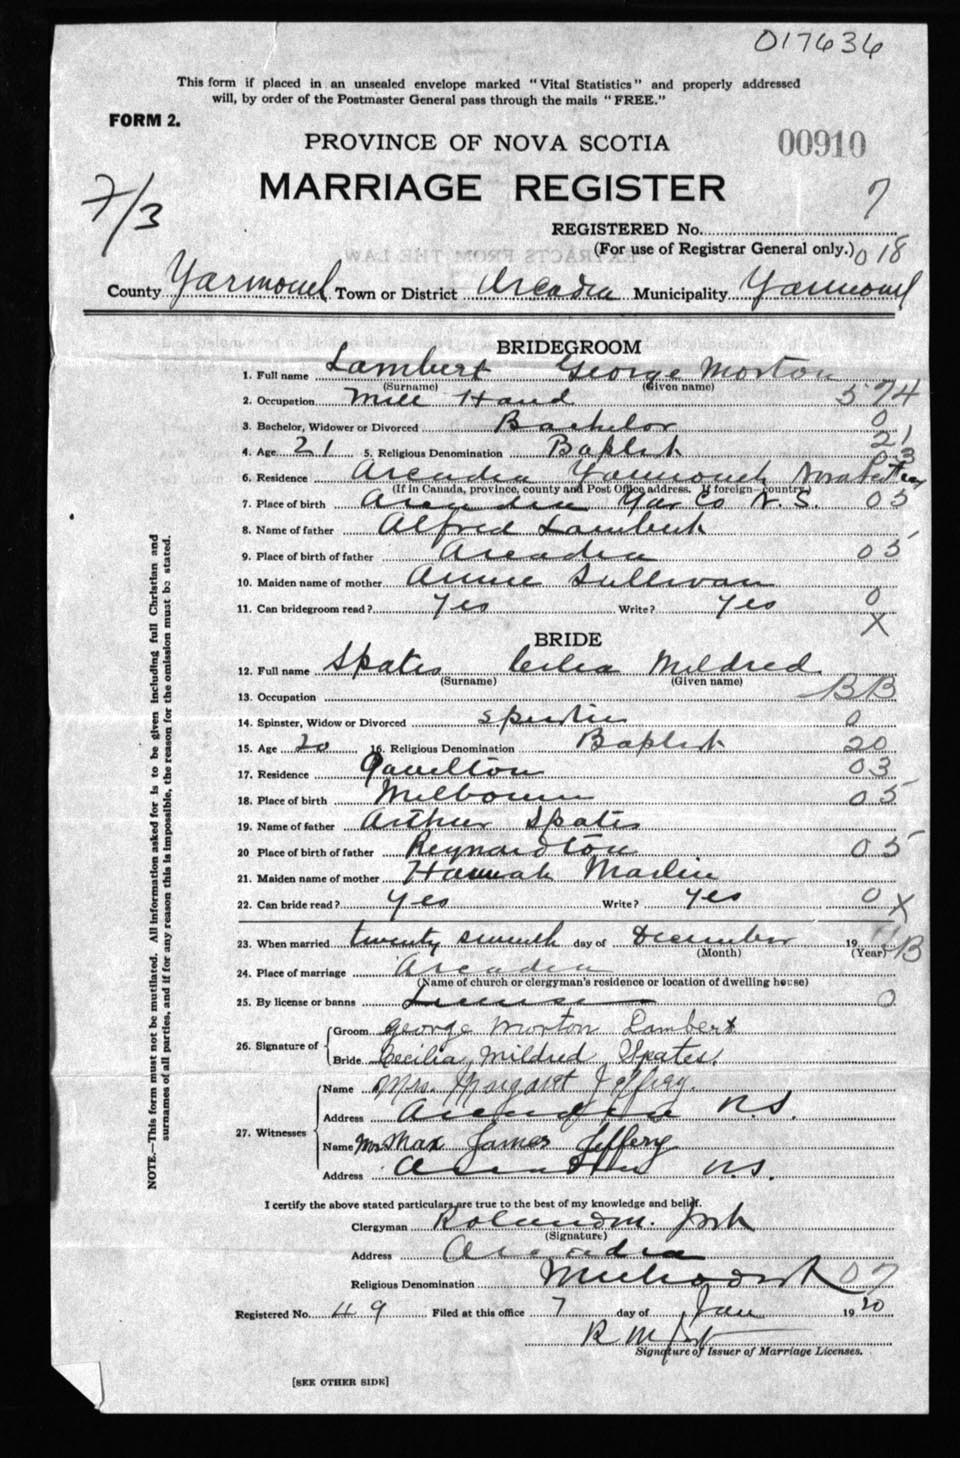 017636
This form if placed in an unsealed envelope marked "Vital Statistics" and properly addressed
will, by order of the Postmaster General pass through the mails "FREE."
FORM 2.
PROVINCE OF NOVA SCOTIA
00910
MARRIAGE REGISTER
7/3
7
REGISTERED No.
(For use of Registrar General only.) 018
County Yarmouth Town or District Arcadia Municipality Yarmouth
BRIDEGROOM
1. Full name Lambert George Morton
(Surname) (Given name)
2. Occupation Mill Hand 574
3. Bachelor, Widower or Divorced Bachelor 0
4. Age 21 5. Religious Denomination Baptist 21
03
6. Residence Arcadia Yarmouth Nova Scotia
(If in Canada, province, county and Post Office address. If foreign—country.)
7. Place of birth Arcadia Yar Co N.S. 05
8. Name of father Alfred Lambert
9. Place of birth of father Arcadia 05
10. Maiden name of mother Annie Sullivan
11. Can bridegroom read? Yes Write? Yes 0
X
BRIDE
12. Full name Spates Celia Mildred
(Surname) (Given name)
13. Occupation BB
14. Spinster, Widow or Divorced Spinster 0
15. Age 20 16. Religious Denomination Baptist 20
17. Residence Gavelton 03
18. Place of birth Melbourne 05
19. Name of father Arthur Spates
20 Place of birth of father Reynardton 05
21. Maiden name of mother Hannah
22. Can bride read? Yes Write? Yes 0 X
23. When married twenty seventh day of December 19
(Month) (Year) B
24. Place of marriage Arcadia
(Name of church or clergyman's residence or location of dwelling house)
25. By license or banns License 0
26. Signature of Groom George Morton Lambert
Bride Cecilia Mildred Spates.
27. Witnesses Name Mrs. Margaret Jeffrey.
Address Arcadia N.S.
Name Mr Max James Jeffery
Address Arcadia N.S.
I certify the above stated particulars are true to the best of my knowledge and belief.
Clergyman Roland M.
(Signature)
Address Arcadia
Religious Denomination Methodist 07
Registered No. 49 Filed at this office 7 day of Jan 1920
R M
Signature of Issuer of Marriage Licenses.
[SEE OTHER SIDE]
NOTE.—This form must not be mutilated. All information asked for is to be given including full Christian and
surnames of all parties, and if for any reason this is impossible, the reason for the omission must be stated.